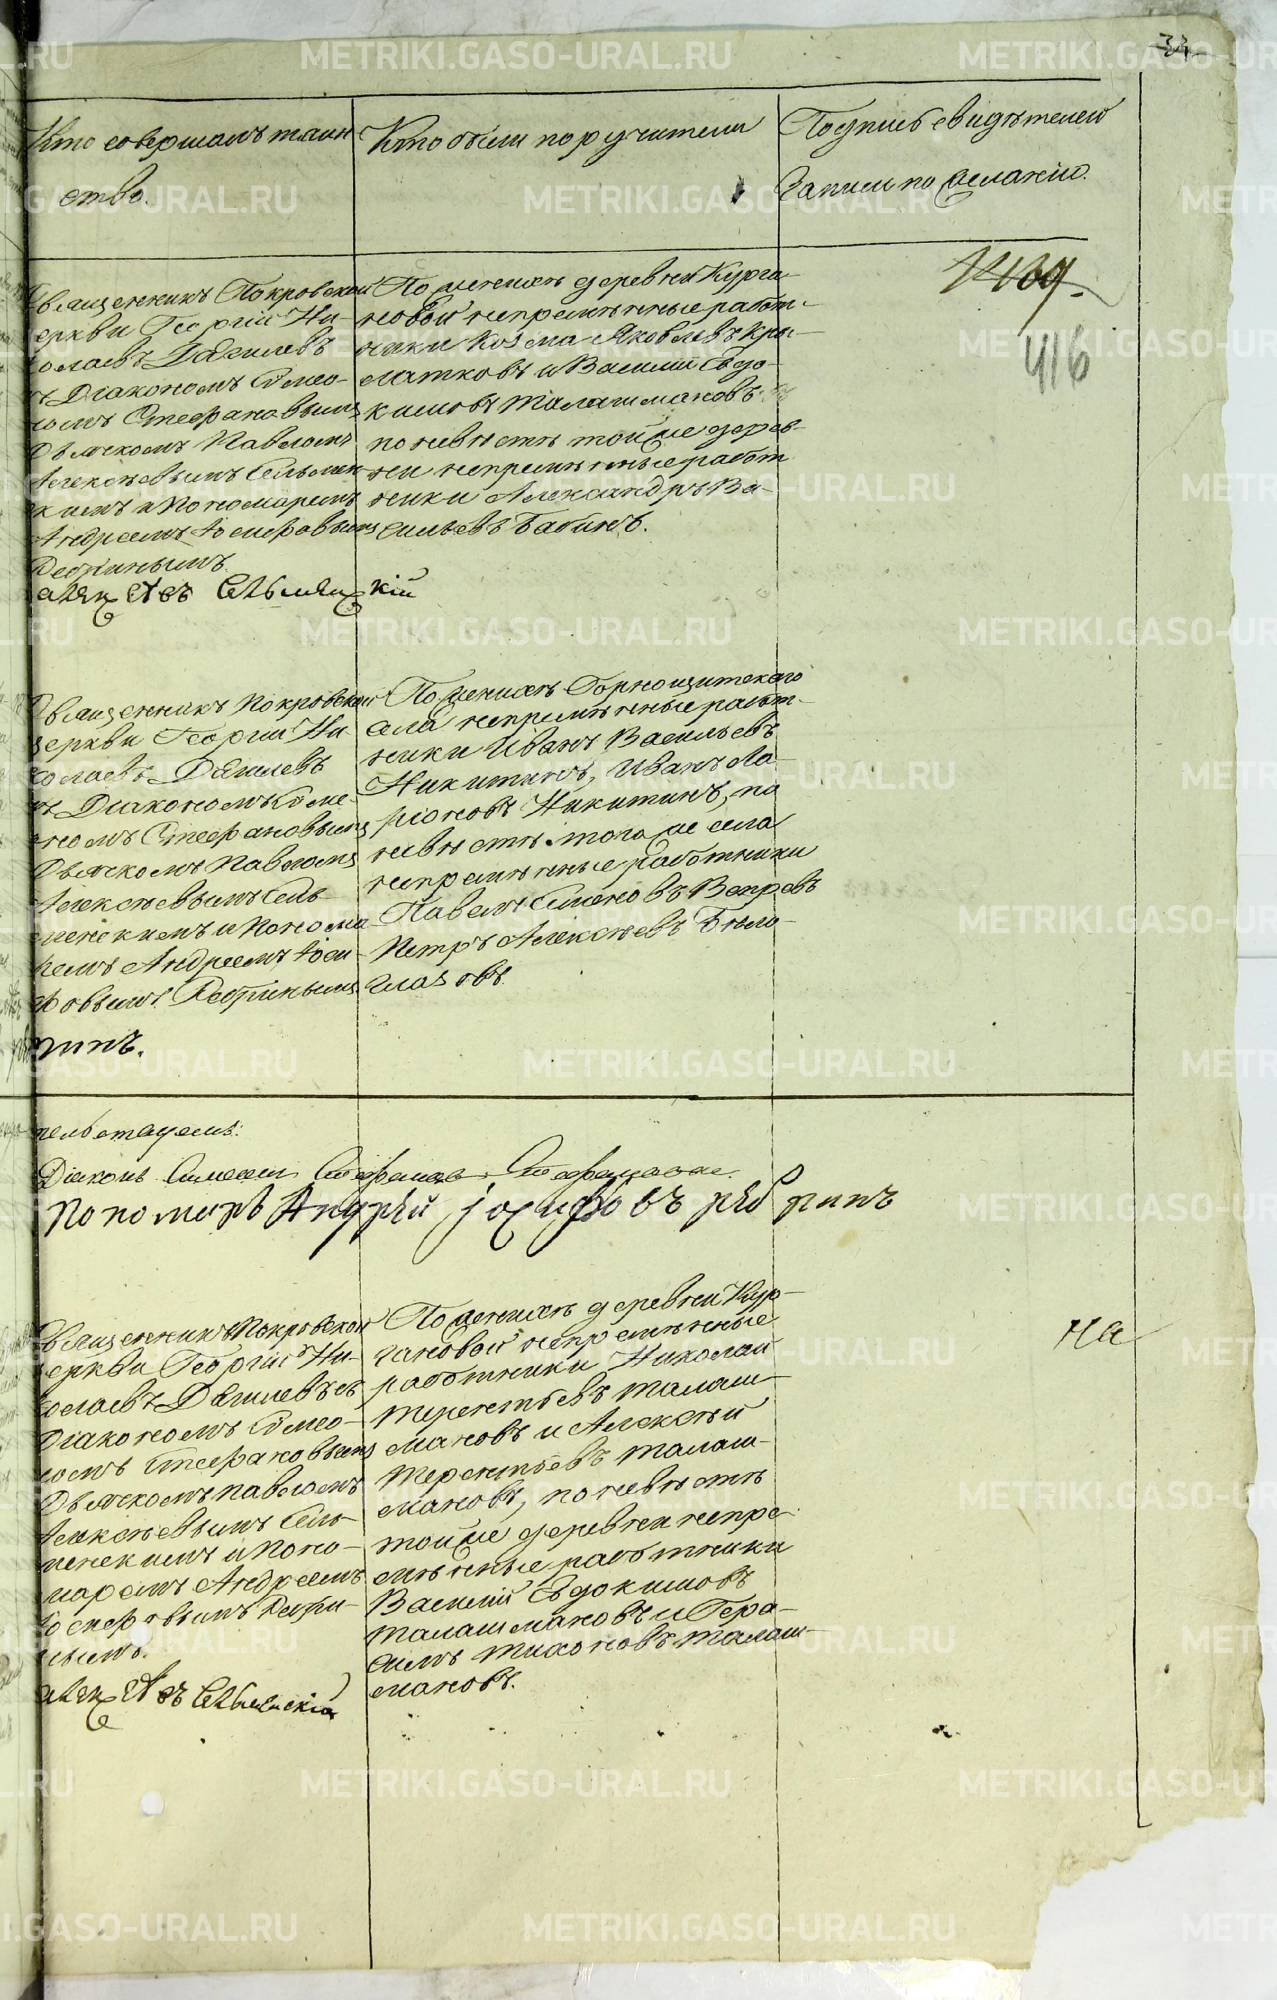 Кто совершалъ таин
ство.
Кто были поручители
Подпись свидѣтелей
записи по желанію.
416
Священникъ Покровской
церкви Георгій Ни-
колаевъ Дягилевъ
съ Діакономъ Симео-
номъ Стефановымъ
Дьячкомъ Павломъ
Алексѣевымъ Сельмен
скимъ и Пономаремъ
Андреемъ Іосифовымъ
Ребринымъ.
По женихѣ деревни Курга-
новой непремѣнные работ-
ники Козма Яковлевъ Кры-
латковъ и Василій Евдо-
кимовъ Талашмановъ
по невѣстѣ той же дерев-
ни непремѣнные работ
ники Александръ Ва-
сильевъ Бабинъ.
Священникъ Покровской
церкви Георгій Ни-
колаевъ Дягилевъ
съ Діакономъ Симе-
ономъ Стефановымъ
Дьячкомъ Павломъ
Алексѣевымъ Сель-
менскимъ и Понома-
ремъ Андреемъ Іоси-
фовымъ Ребринымъ
По женихѣ Горнощитскаго
села непремѣнные работ-
ники Иванъ Васильевъ
Никитинъ, Иванъ Ла-
ріоновъ Никитинъ, по
невѣстѣ того же села
непремѣнные работники
Павелъ Сименовъ Вепревъ
Петръ Алексѣевъ Бѣло-
глазовъ.
Діаконъ Симеонъ Стефановъ
Пономарь Андрей Іосифовъ Ребринъ
Священникъ Покровской
церкви Георгій Ни-
колаевъ Дягилевъ съ
Діакономъ Симео-
номъ Стефановымъ
Дьячкомъ Павломъ
Алексѣевымъ Сель-
менскимъ и Поно-
маремъ Андреемъ
Іосифовымъ Ребри-
нымъ.
По женихѣ деревни Кур-
гановой непремѣнные
работники Николай
Терентьевъ Талаш-
мановъ и Алексѣй
Терентьевъ Талаш-
мановъ, по невѣстѣ
той же деревни непре-
мѣнные работники
Василій Евдокимовъ
Талашмановъ и Гера-
симъ Тихоновъ Талаш-
мановъ.
на
METRIKI.GASO-URAL.RU